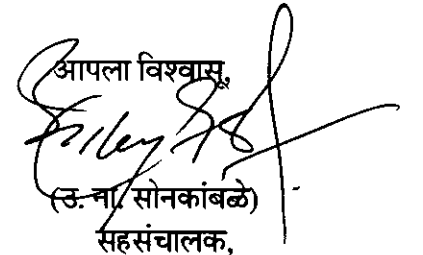 आपला विश्वासू,
(उ. ना. सोनकांबळे)
सहसंचालक,